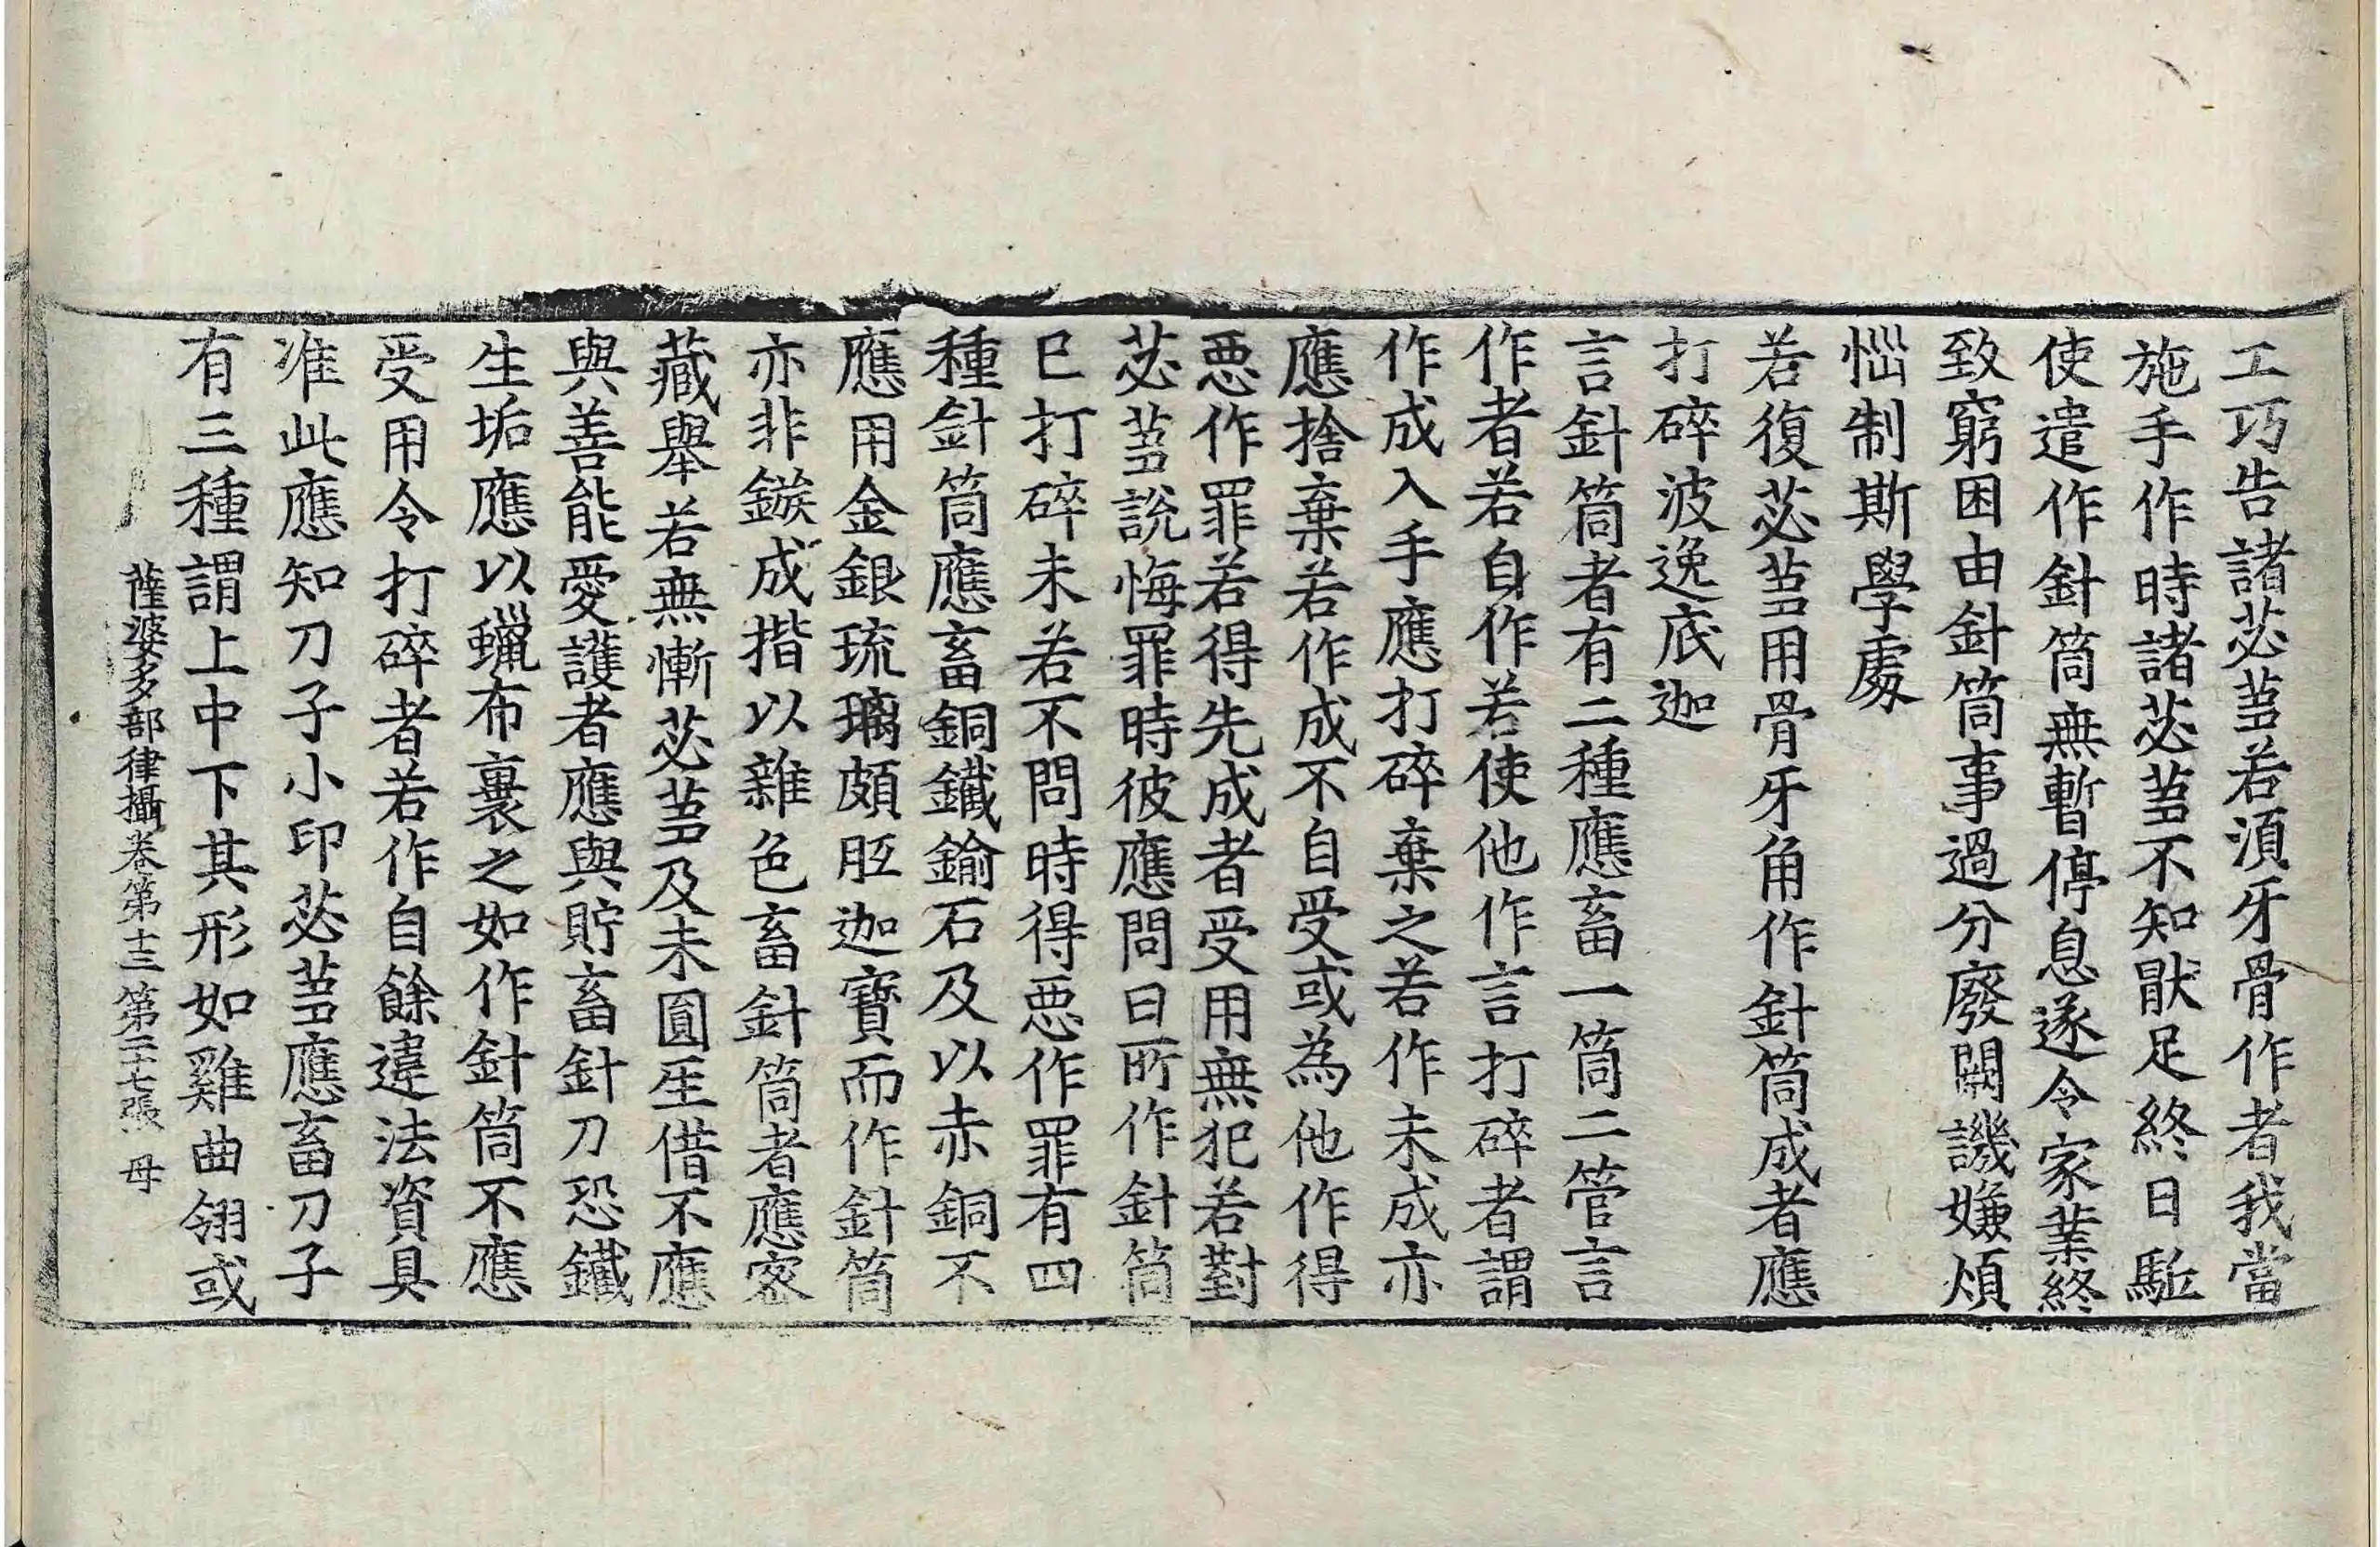 工巧告諸苾芻若湏牙骨作者我當
施手作時諸苾芻不知猒足終日駈
使遣作針筒無暫停息遂令家業終
致窮困由針筒事過分廢闕譏嫌煩
惱制斯學處
若復苾芻用骨牙角作針筒成者應
打碎波逸底迦
言針筒者有二種應畜一筒二管言
作者若自作若使他作言打碎者謂
作成入手應打碎棄之若作未成亦
應捨棄若作成不自受或為他作得
惡作罪若得先成者受用無犯若對
苾芻說悔罪時彼應問曰所作針筒
已打碎未若不問時得惡作罪有四
種針筒應畜銅鐵鍮石及以赤銅不
應用金銀琉璃頗胝迦寶而作針筒
亦非鏃成揩以雜色畜針筒者應密
藏舉若無慚苾芻及未圓至借不應
與善能愛護者應與貯畜針刀恐鐵
生垢應以蠟布裹之如作針筒不應
受用令打碎者若作自餘違法資具
准此應知刀子小印苾芻應畜刀子
有三種謂上中下其形如雞曲翎或
薩婆多部律攝卷第十三 第二十七張 母